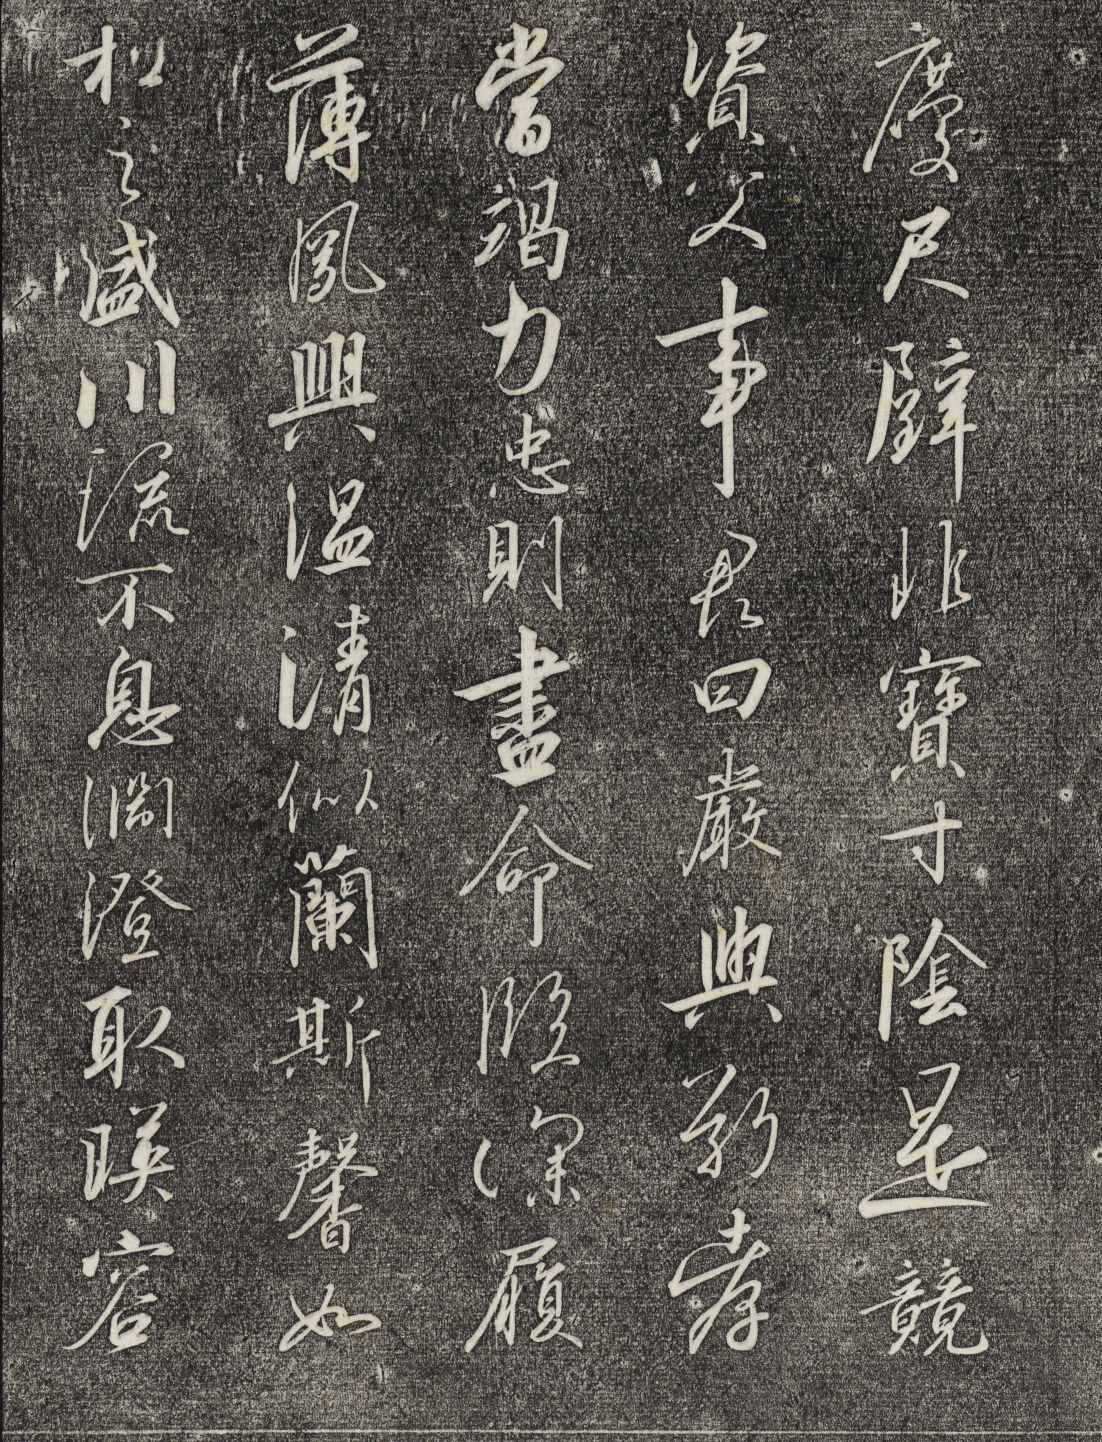 慶尺璧非寶寸陰是競
資父事君曰嚴與敬孝
當竭力忠則盡命臨深履
薄夙興溫清似蘭斯馨如
松之盛川流不息淵澄取暎容